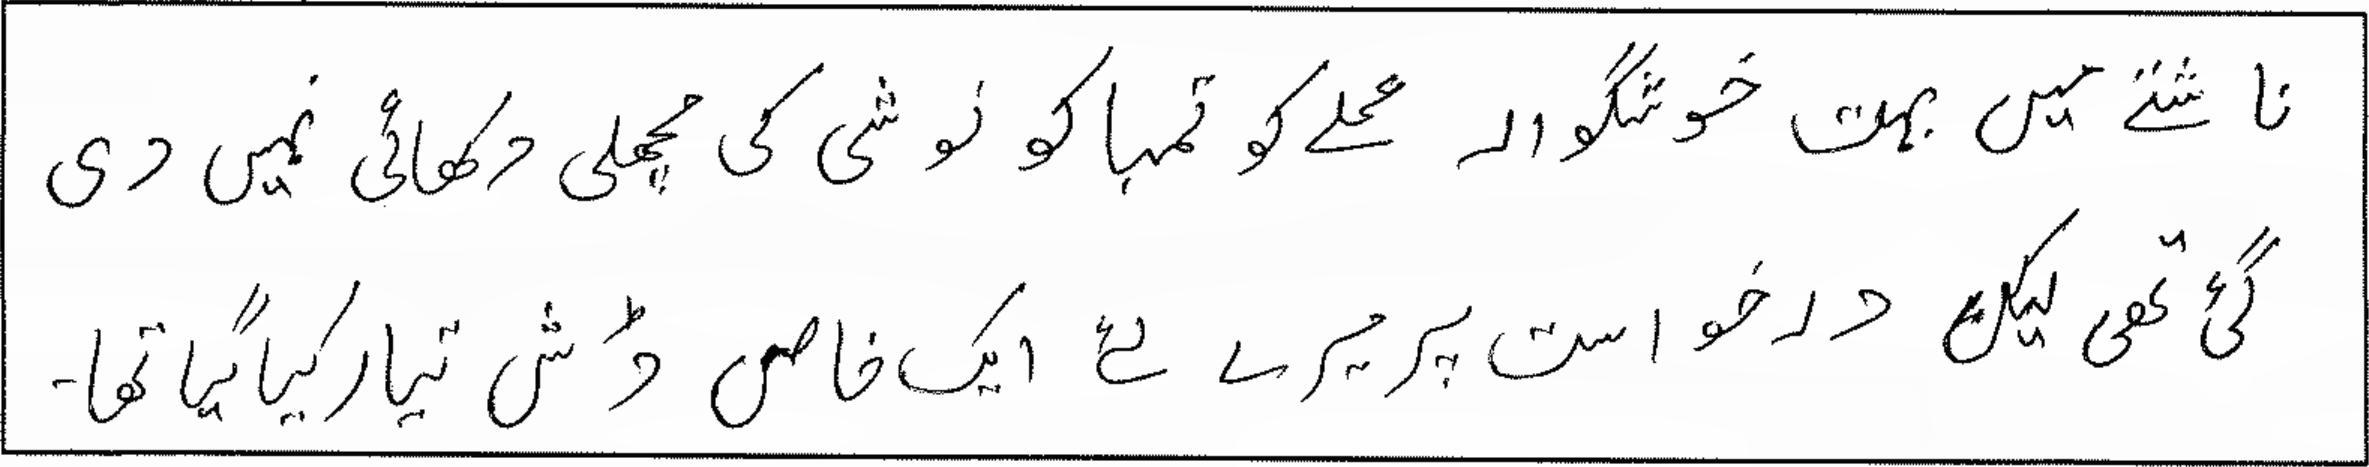 ناشتے میں بہت خوشگوار عملے کو تمباکو نوشی کی مچھلی دکھائی نہیں دی
گئی تھی لیکن درخواست پر میرے لئے ایک خاص ڈش تیار کیا گیا تھا۔